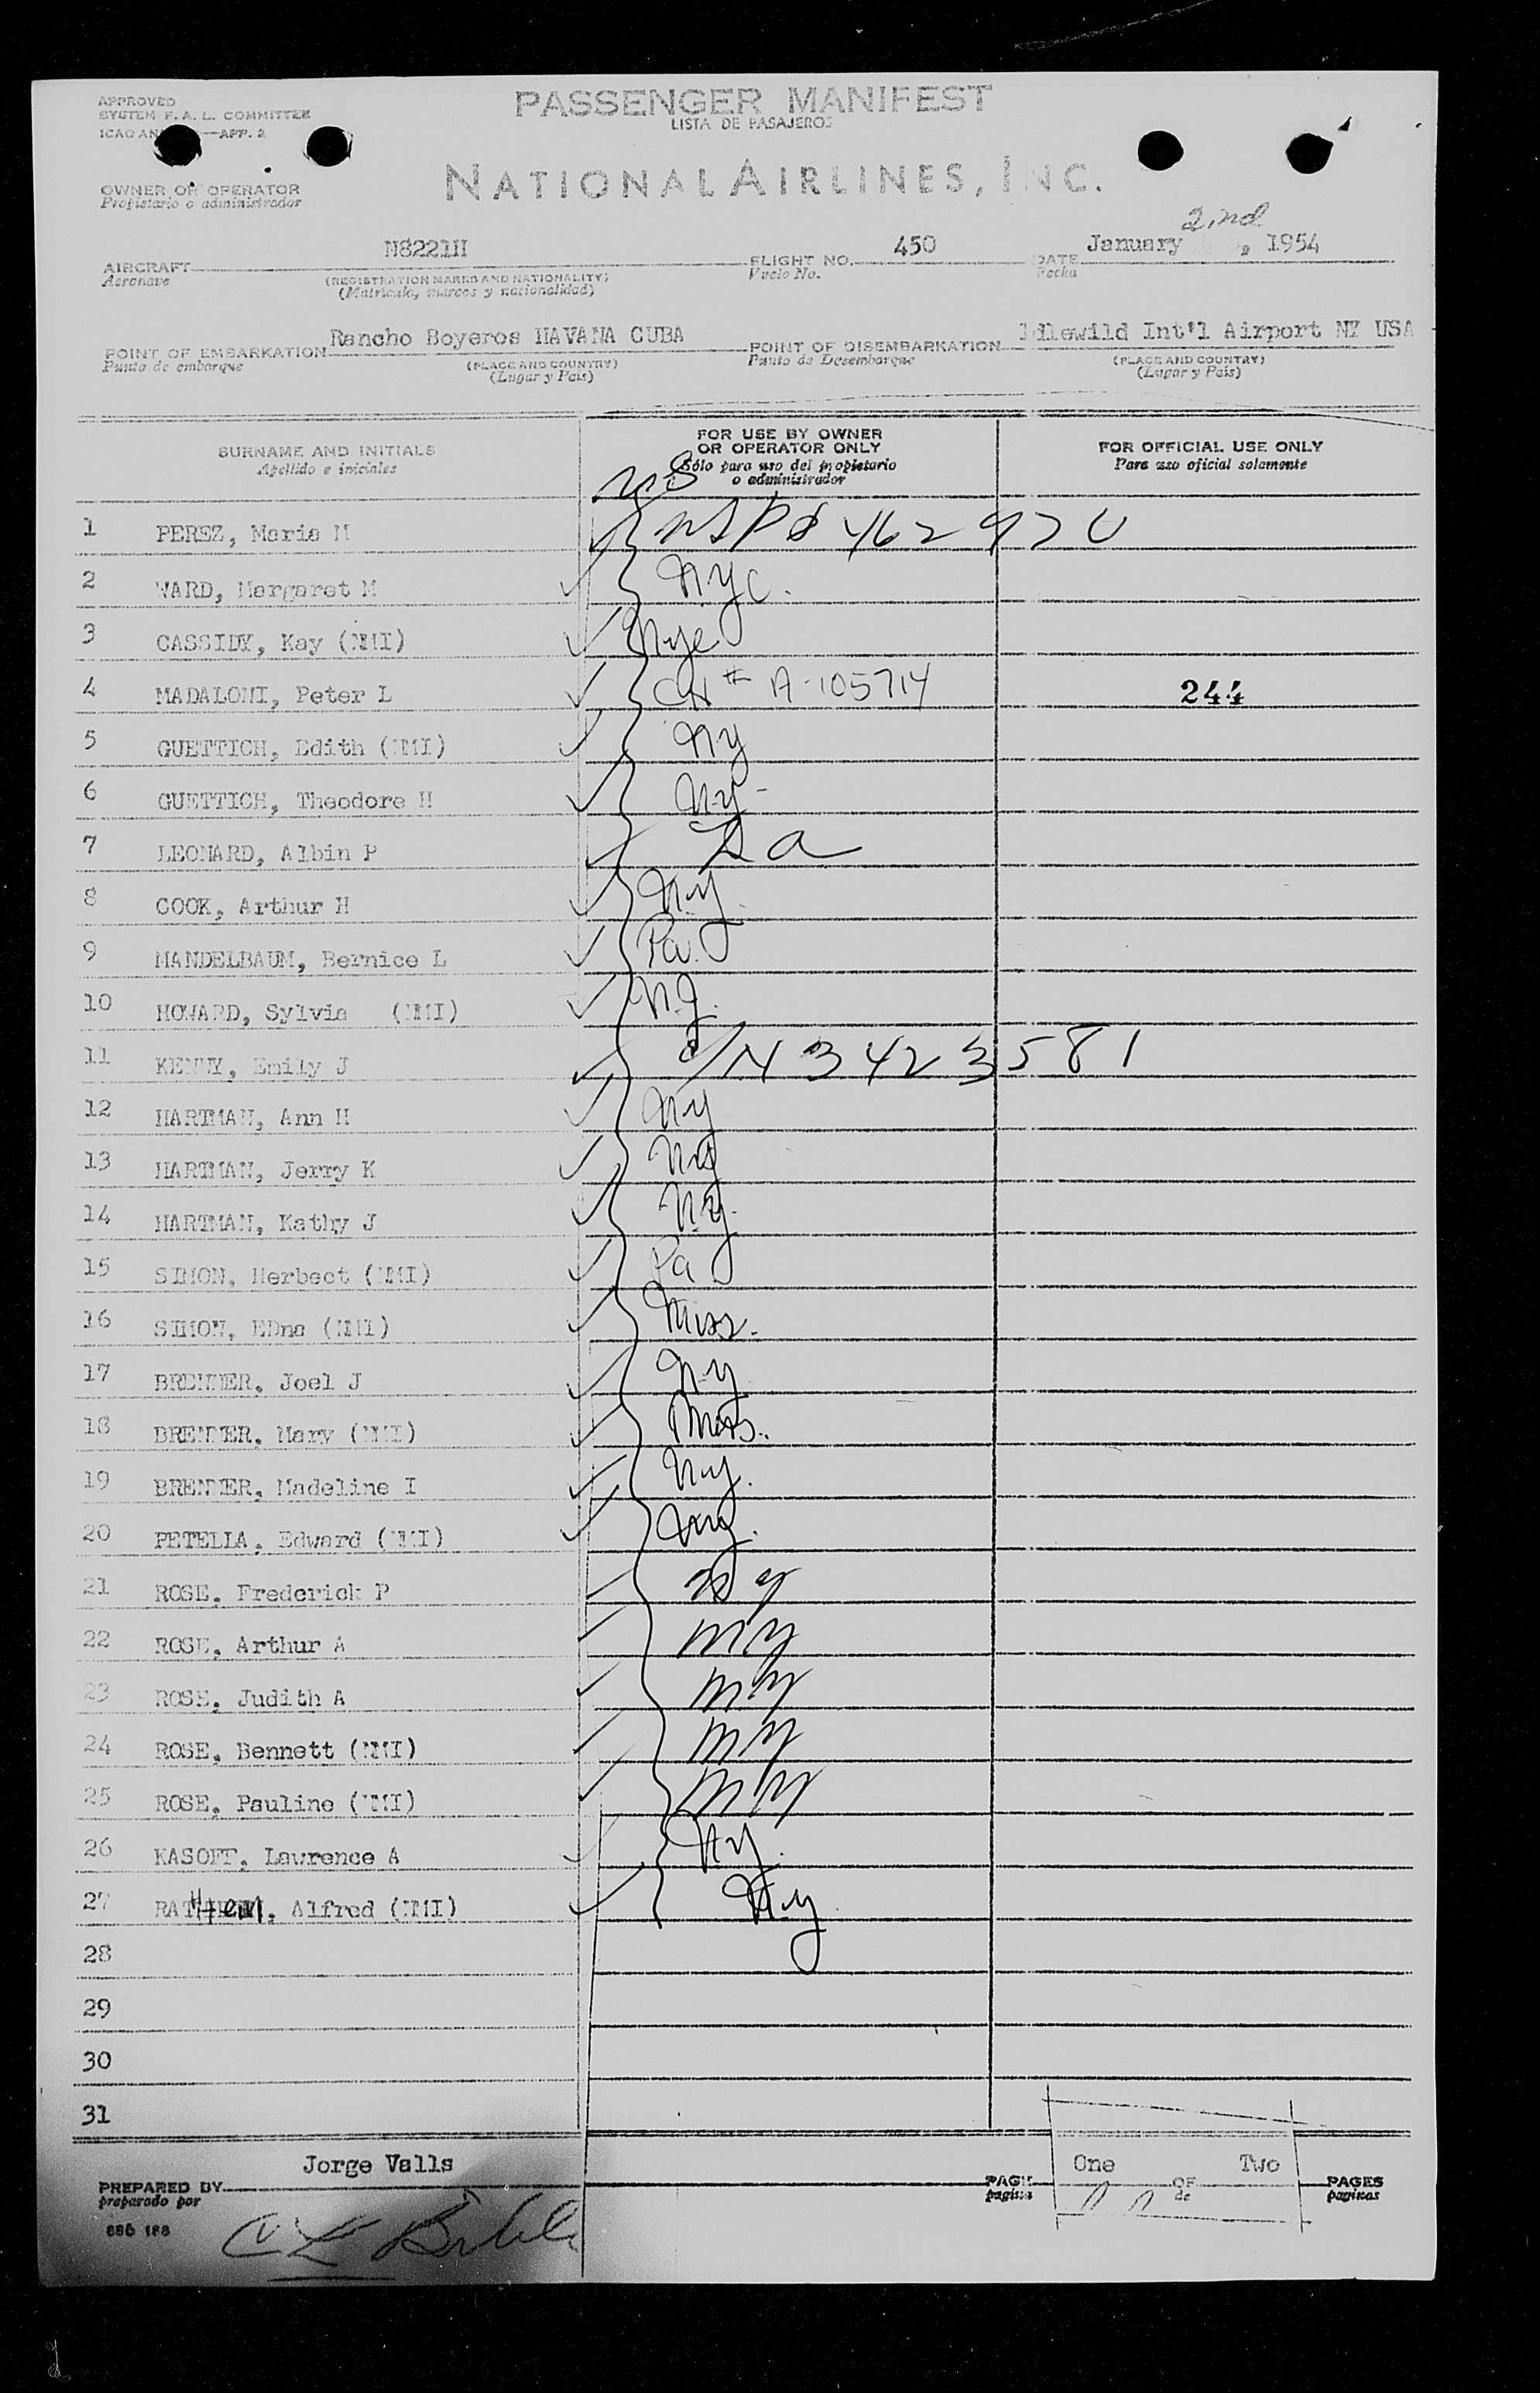 APPROVED
SYSTEM F. A. L. COMMITTEE
ICAO AN —APP. 2
PASSENGER MANIFEST
LISTA DE PASAJEROS
NATIONAL AIRLINES, INC.
OWNER OR OPERATOR
Propietario o administrador
2,nd
N8221H 450 January , 1954
AIRCRAFT FLIGHT NO. DATE
Aeronave (REGISTRATION MARKS AND NATIONALITY) Vuelo No. Fecha
(Matricula, marcas y nacionalidad)
Rancho Boyeros HAVANA CUBA Idlewild Int'l Airport NY USA
POINT OF EMBARKATION POINT OF DISEMBARKATION
Punto de embarque (PLACE AND COUNTRY) Punto de Desembarque (PLACE AND COUNTRY)
(Lugar y Pais) (Lugar y Pais)
SURNAME AND INITIALS FOR USE BY OWNER OR OPERATOR ONLY FOR OFFICIAL USE ONLY
Apellido e iniciales Sólo para uso del propietario o administrador Para uso oficial solamente
1 PEREZ, Maria M
2 WARD, Margaret M NYC.
3 CASSIDY, Kay (NMI) NYC
4 MADALONI, Peter L CN # A-105714 244
5 GUETTICH, Edith (NMI) NY
6 GUETTICH, Theodore H N.Y.-
7 LEONARD, Albin P Pa
8 COOK, Arthur H N.Y.
9 MANDELBAUM, Bernice L Pa.
10 HOWARD, Sylvia (NMI) N.J.
11 KENNY, Emily J C/N 3423581
12 HARTMAN, Ann H NY
13 HARTMAN, Jerry K NY
14 HARTMAN, Kathy J N.Y.
15 SIMON, Herbect (NMI) Pa
16 SIMON, EDna (NMI) Miss.
17 BRENNER, Joel J N.Y
18 BRENNER, Mary (NMI)
19 BRENNER, Madeline I N.Y.
20 PETELLA, Edward (NMI) NY.
21 ROSE, Frederick P NY
22 ROSE, Arthur A NY
23 ROSE, Judith A NY
24 ROSE, Bennett (NMI) NY
25 ROSE, Pauline (NMI) NY
26 KASOFF, Lawrence A N.Y.
27 RATHEM, Alfred (NMI) N.Y.
28
29
30
31
Jorge Valls One Two
PREPARED BY PAGE OF PAGES
preparado por pagina de paginas